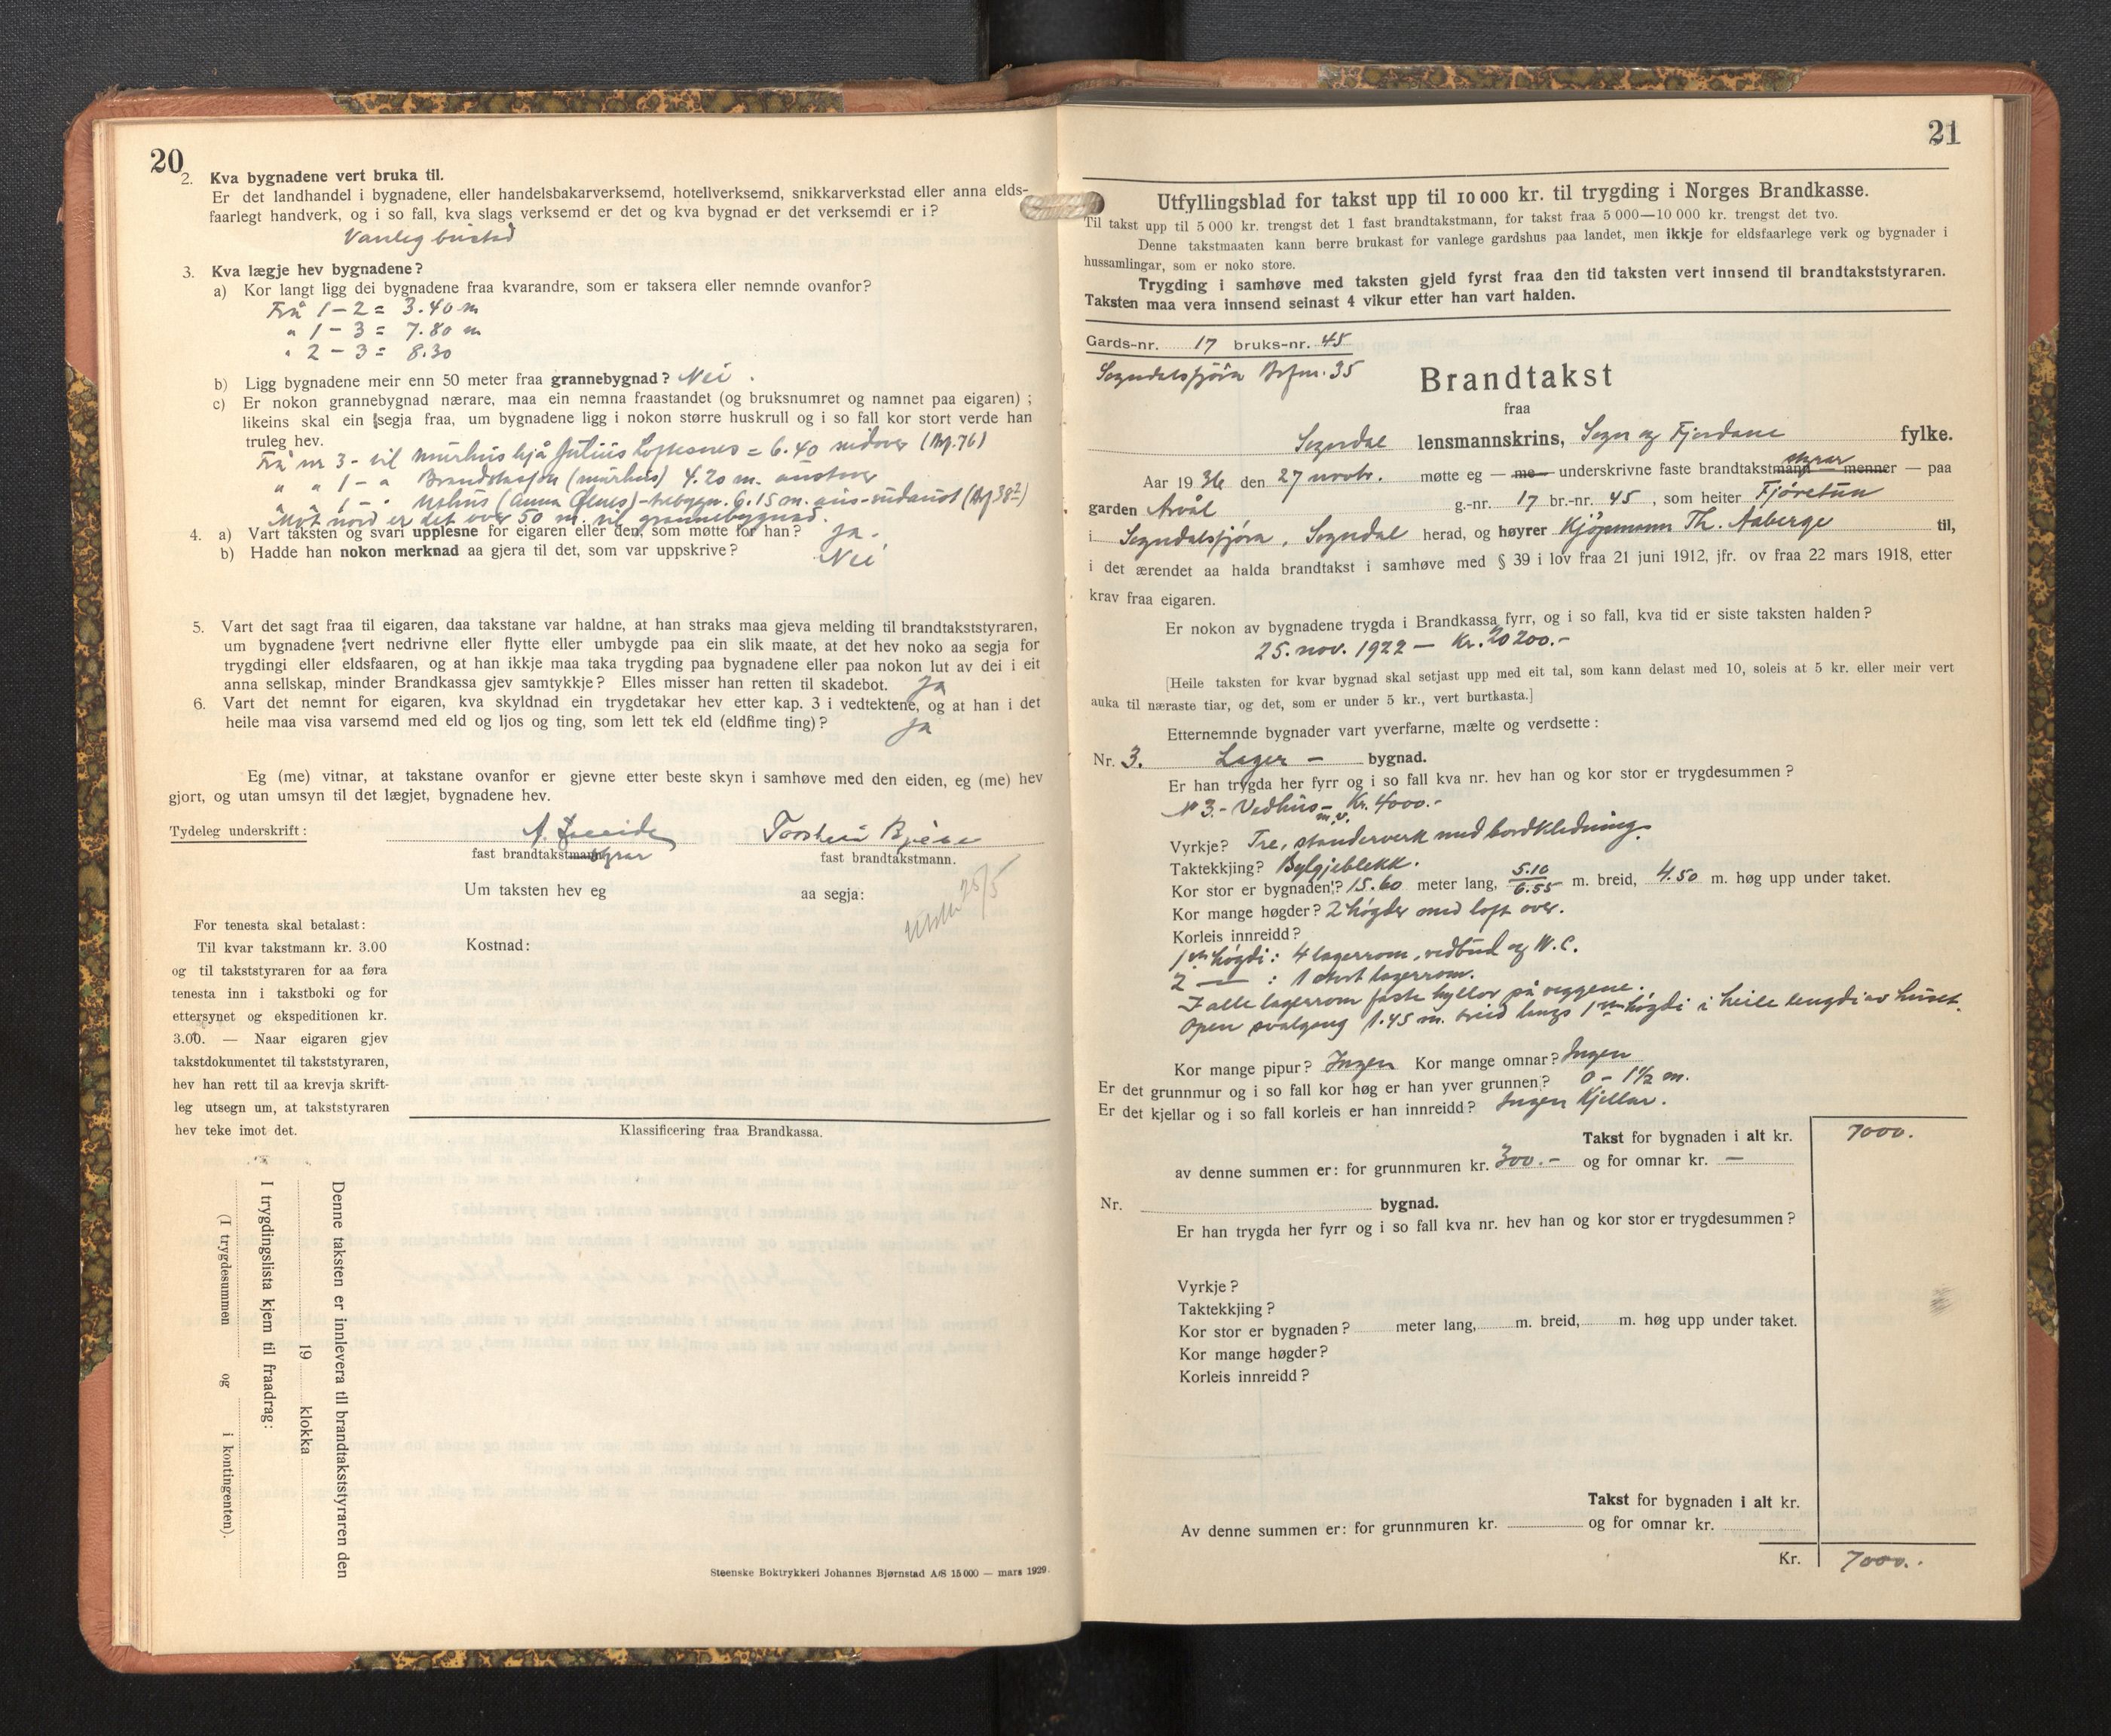 20
2. Kva bygnadene vert bruka til.
Er det landhandel i bygnadene, eller handelsbakarverksemd, hotellverksemd, snikkarverkstad eller anna elds-
faarlegt handverk, og i so fall, kva slags verksemd er det og kva bygnad er det verksemdi er i?
Vanleg bustad
3. Kva lægje hev bygnadene?
a) Kor langt ligg dei bygnadene fraa kvarandre, som er taksera eller nemnde ovanfor?
Frå 1 – 2 = 3.40 m
" 1 – 3 = 7.80 m
" 2 – 3 = 8.30
b) Ligg bygnadene meir enn 50 meter fraa grannebygnad? Nei.
c) Er nokon grannebygnad nærare, maa ein nemna fraastandet (og bruksnumret og namnet paa eigaren);
likeins skal ein segja fraa, um bygnadene ligg i nokon større huskrull og i so fall kor stort verde han
truleg hev.
Frå nr 3 - til murhus hjå Julius Loftesnes = 6.40 nedover (Brf. 76)
" " 1 - " Brandstasjon (murhus) 4.20 m. austover
" " 1 - " (Anna Ølnes) - trebygn. 6.15 m. aus-sudaust (Brf 38²)
Mot nord er det over 50 m. til grannebygnad.
4. a) Vart taksten og svari upplesne for eigaren eller den, som møtte for han? Ja.
b) Hadde han nokon merknad aa gjera til det, som var uppskrive? Nei
5. Vart det sagt fraa til eigaren, daa takstane var haldne, at han straks maa gjeva melding til brandtakststyraren,
um bygnadene vert nedrivne eller flytte eller umbygde paa ein slik maate, at det hev noko aa segja for
trygdingi eller eldsfaaren, og at han ikkje maa taka trygding paa bygnadene eller paa nokon lut av dei i eit
anna sellskap, minder Brandkassa gjev samtykkje? Elles misser han retten til skadebot. Ja
6. Vart det nemnt for eigaren, kva skyldnad ein trygdetakar hev etter kap. 3 i vedtektene, og at han i det
heile maa visa varsemd med eld og ljos og ting, som lett tek eld (eldfime ting)? Ja
Eg (me) vitnar, at takstane ovanfor er gjevne etter beste skyn i samhøve med den eiden, eg (me) hev
gjort, og utan umsyn til det lægjet, bygnadene hev.
Tydeleg underskrift: Torstein
fast brandtakstmann styrar fast brandtakstmann.
Um taksten hev eg aa segja:
25/5
For tenesta skal betalast:
Til kvar takstmann kr. 3.00
og til takststyraren for aa føra
tenesta inn i takstboki og for
ettersynet og ekspeditionen kr.
3.00. — Naar eigaren gjev
takstdokumentet til takststyraren,
hev han rett til aa krevja skrift-
leg utsegn um, at takststyraren
hev teke imot det.
Kostnad:
Klassificering fraa Brandkassa.
Denne taksten er innlevera til brandtakststyraren den
19 klokka
I trygdingslista kjem til fraadrag:
(I trygdesummen og i kontingenten).
Steenske Boktrykkeri Johannes Bjørnstad A/S 15 000 — mars 1929.
21
Utfyllingsblad for takst upp til 10 000 kr. til trygding i Norges Brandkasse.
Til takst upp til 5 000 kr. trengst det 1 fast brandtakstmann, for takst fraa 5 000—10 000 kr. trengst det tvo.
Denne takstmaaten kann berre brukast for vanlege gardshus paa landet, men ikkje for eldsfaarlege verk og bygnader i
hussamlingar, som er noko store.
Trygding i samhøve med taksten gjeld fyrst fraa den tid taksten vert innsend til brandtakststyraren.
Taksten maa vera innsend seinast 4 vikur etter han vart halden.
Gards-nr. 17 bruks-nr. 45
Sogndalsfjøra Brfnr. 35
Brandtakst
fraa
Sogndal lensmannskrins, Sogn og Fjordane fylke.
Aar 1936 den 27 novbr. møtte eg — me — underskrivne faste brandtakstmann styrar — menner — paa
garden Årvål g.-nr. 17 br.-nr. 45, som heiter Fjøretun
i Sogndalsfjøra, Sogndal herad, og høyrer Kjøpmann Th. Aaberge til,
i det ærendet aa halda brandtakst i samhøve med § 39 i lov fraa 21 juni 1912, jfr. ov fraa 22 mars 1918, etter
krav fraa eigaren.
Er nokon av bygnadene trygda i Brandkassa fyrr, og i so fall, kva tid er siste taksten halden?
25. nov. 1922 — Kr. 20 200.-
[Heile taksten for kvar bygnad skal setjast upp med eit tal, som kann delast med 10, soleis at 5 kr. eller meir vert
auka til næraste tiar, og det, som er under 5 kr., vert burtkasta.]
Etternemnde bygnader vart yverfarne, mælte og verdsette:
Nr. 3. Lager – bygnad.
Er han trygda her fyrr og i so fall kva nr. hev han og kor stor er trygdesummen?
Nr 3. - Vedhus m.v. – Kr. 4000.-
Vyrkje? Tre, standerverk med bordkledning.
Taktekkjing? Bylgjeblekk.
Kor stor er bygnaden? 15.60 meter lang, 5.10/6.55 m. breid, 4.50 m. høg upp under taket.
Kor mange høgder? 2 høgder med loft over.
Korleis innreidd?
1ste høgdi: 4 lagerrom, vedbud og W.C.
2 — : 1 stort lagerrom.
I alle lagerrom faste hyllor på veggene.
Open svalgang 1.45 m. breid langs 1ste høgdi i heile lengdi av huset.
Kor mange pipur? Ingen Kor mange omnar? Ingen
Er det grunnmur og i so fall kor høg er han yver grunnen? 0 – 1½ m.
Er det kjellar og i so fall korleis er han innreidd? Ingen kjellar.
Takst for bygnaden i alt kr. 7000.
av denne summen er: for grunnmuren kr. 300.– og for omnar kr. –
Nr. bygnad.
Er han trygda her fyrr og i so fall kva nr. hev han og kor stor er trygdesummen?
Vyrkje?
Taktekkjing?
Kor stor er bygnaden? meter lang, m. breid, m. høg upp under taket.
Kor mange høgder?
Korleis innreidd?
Takst for bygnaden i alt kr.
Av denne summen er: for grunnmuren kr. og for omnar kr.
Kr. 7000.-